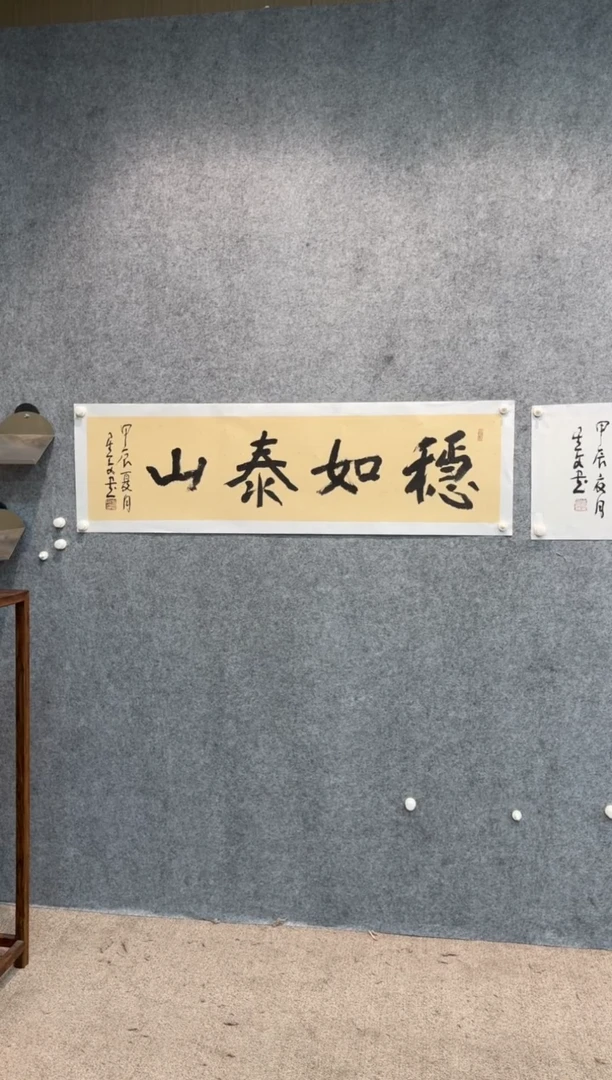 穩如泰山
甲辰夏月
甲辰夏月